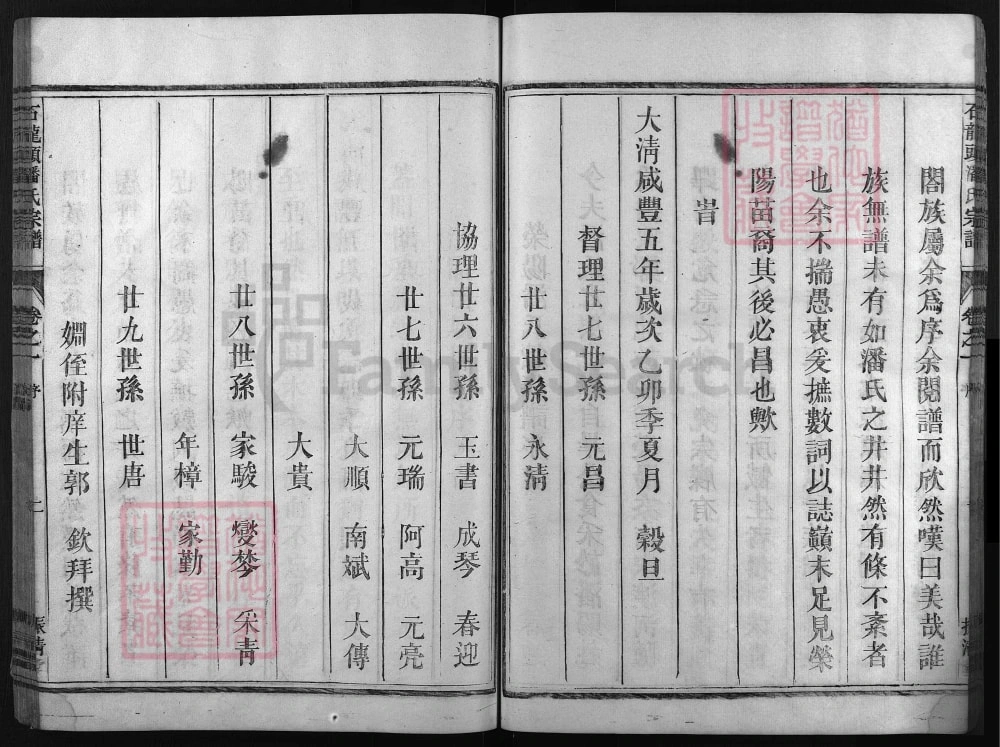 石龍頭潘氏宗譜
卷之一
序
閤族屬余爲序余閱譜而欣然嘆曰美哉誰
族無譜未有如潘氏之井井然有條不紊者
也余不揣愚衷爰撫數詞以誌巔末足見榮
陽苗裔其後必昌也歟
旹
大清咸豐五年歲次乙卯季夏月 穀旦
督理廿七世孫 元昌
廿八世孫 永清
協理廿六世孫 玉書 成琴 春迎
廿七世孫 元瑞 阿高 元亮
大順 南斌 大傳
大貴
廿八世孫 家駿 燮棽 采靑
年樟 家勤
廿九世孫 世唐
婣侄附庠生郭 欽拜撰
石龍頭潘氏宗譜
卷之一
序
FamilySearch